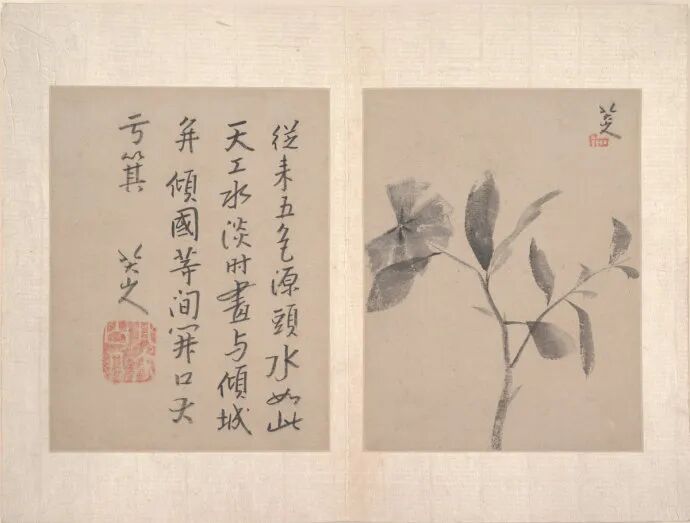 八大山人
從来五色源頭水如此
天工水淡时畫与傾城
并傾國等口大
亏箕
八大山人